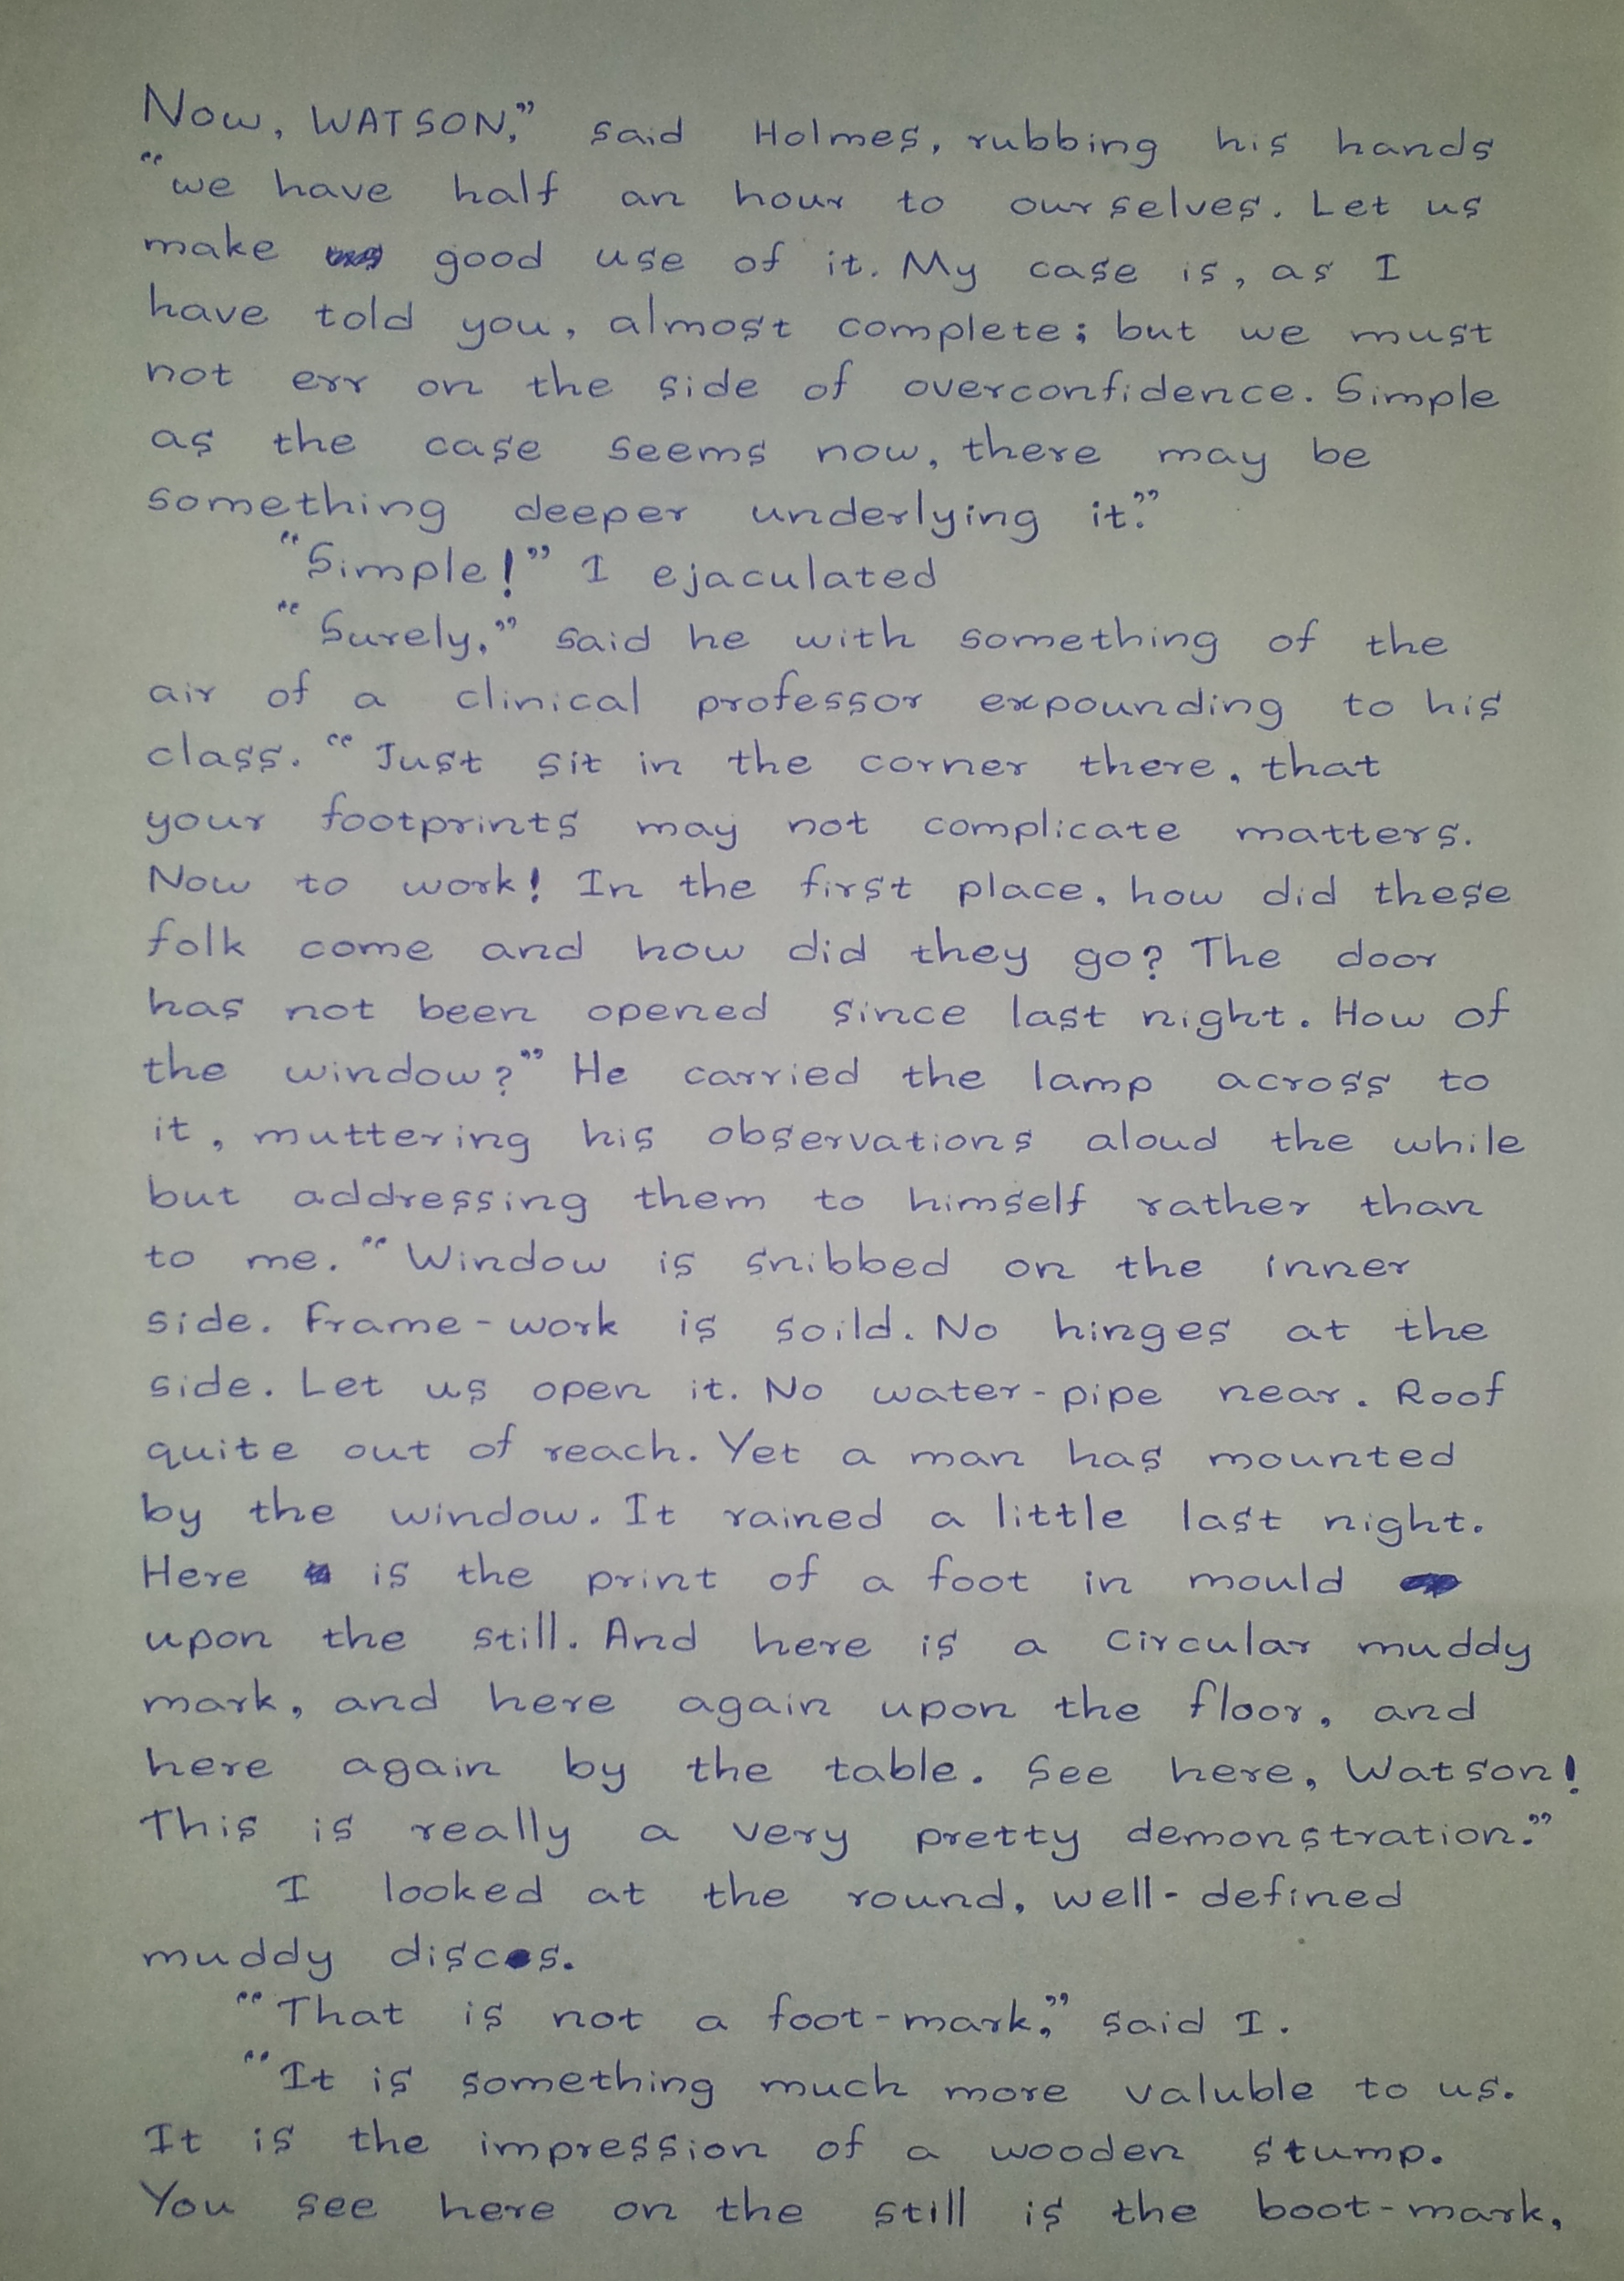 Now, WATSON," said Holmes, rubbing his hands
"we have half an hour to ourselves. Let us
make good use of it. My case is, as I
have told you, almost complete; but we must
not err on the side of overconfidence. Simple
as the case seems now, there may be
something deeper underlying it."
"Simple!" I ejaculated
"Surely," said he with something of the
air of a clinical professor expounding to his
class. "Just sit in the corner there, that
your footprints may not complicate matters.
Now to work! In the first place, how did these
folk come and how did they go? The door
has not been opened since last night. How of
the window?" He carried the lamp across to
it, muttering his observations aloud the while
but addressing them to himself rather than
to me. "Window is snibbed on the inner
side. Frame-work is soild. No hinges at the
side. Let us open it. No water-pipe near. Roof
quite out of reach. Yet a man has mounted
by the window. It rained a little last night.
Here is the print of a foot in mould
upon the still. And here is a circular muddy
mark, and here again upon the floor, and
here again by the table. See here, Watson!
This is really a very pretty demonstration."
I looked at the round, well-defined
muddy discs.
"That is not a foot-mark," said I.
"It is something much more valuble to us.
It is the impression of a wooden stump.
You see here on the still is the boot-mark,